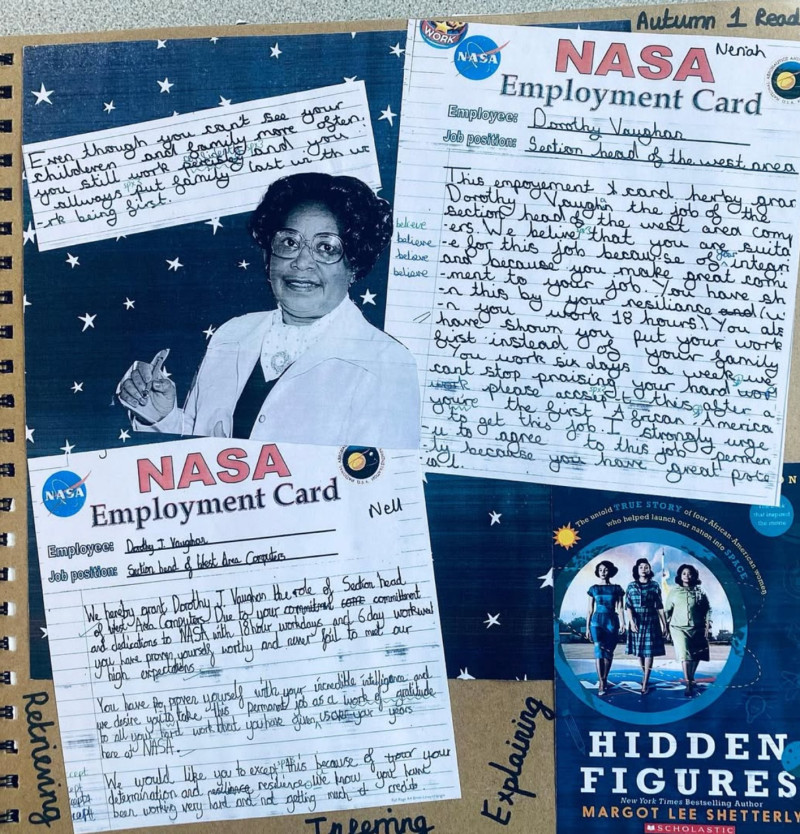 Autumn 1 Read
Even though you can't see your
childeren and family more often.
you still work
and you
allways put family last us th wo
-rk being first.
WORK
NASA
NASA
Neriah
Employment Card
Employee: Dorothy Vaughan
Job position: Section head of the west area
This empoyement card herby gran
Dorothy Vaughn the job of the
section head of the west area comp
-ers. We belive that you are suita
-e for this job because of your integri
and because you make great comi
-ment to your job. You have sh
-n this by your resiliance and (w
-n you work 18 hours) You als
have shown you put your work
first instead of your family
You work six days a weak we
cant stop praising your hard wor
please accept this after a
you're the first African America
to get this job. I strongly urge
-u to agree to this job permen
-ly because you have great pote
-ial.
believe
believe
believe
believe
NASA
NASA
Nell
Employment Card
Employee: Dorothy J Vaughan
Job position: Section head of West Area Computers
We hereby grant Dorothy J Vaughan the role of Section head
of West Area Computers. Due to your commitment
and dedications to NASA with 18 hour workdays and 6 day workweek
you have proven yourself worthy and never fail to meet our
high expectations
You have proven yourself with your incredible intelligence and
we desire you to take this permanent job as a work of gratitude
to all your hard work that you have given us your years
here at NASA.
We would like you to except this because of your
determination and resilience. We know you have
been working very hard and not getting much credit
Retrieving
Inferring
Explaining
The untold TRUE STORY of four African-American women
who helped launch our nation into SPACE
that inspired
the movie
HIDDEN
FIGURES
New York Times Bestselling Author
MARGOT LEE SHETTERLY
SCHOLASTIC